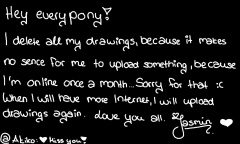 Hey everypony!
I delete all my drawings, because it makes
no sence for me to upload something, because
I'm online once a month... Sorry for that :c
When I will have more Internet, I will upload
drawings again. Love you all. Jasmin ♥
@Akiko: ♥ Kiss you ♥